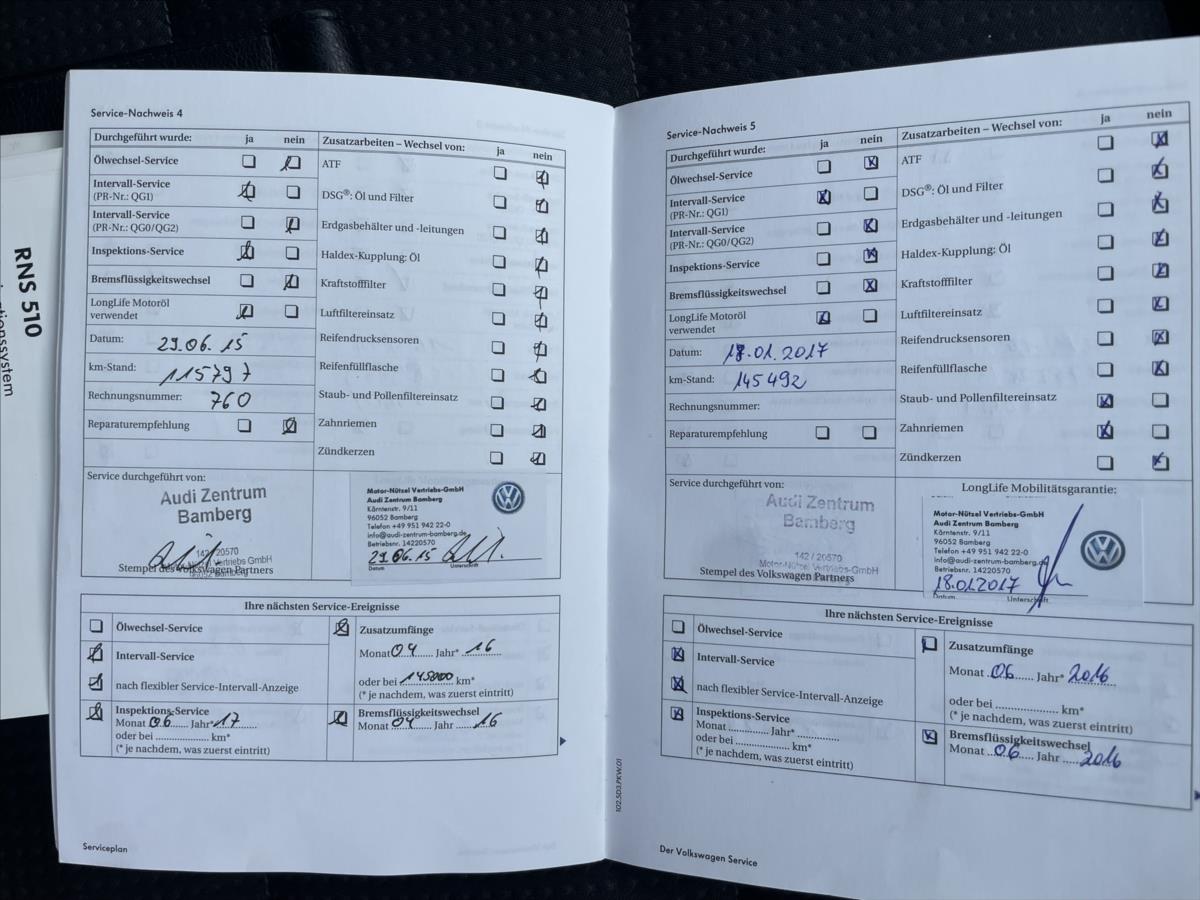 RNS 510
Service-Nachweis 4
Durchgeführt wurde: ja nein
Ölwechsel-Service
Intervall-Service
(PR-Nr.: QG1)
Intervall-Service
(PR-Nr.: QG0/QG2)
Inspektions-Service
Bremsflüssigkeitswechsel
LongLife Motoröl
verwendet
Datum: 29.06.15
km-Stand: 115797
Rechnungsnummer: 760
Reparaturempfehlung
Zusatzarbeiten – Wechsel von: ja nein
ATF
DSG®: Öl und Filter
Erdgasbehälter und -leitungen
Haldex-Kupplung: Öl
Kraftstofffilter
Luftfiltereinsatz
Reifendrucksensoren
Reifenfüllflasche
Staub- und Pollenfiltereinsatz
Zahnriemen
Zündkerzen
Service durchgeführt von:
Audi Zentrum
Bamberg
142 / 20570
Motor-Nützel Vertriebs GmbH
96052 Bamberg
Stempel des Volkswagen Partners
Motor-Nützel Vertriebs-GmbH
Audi Zentrum Bamberg
Kärntenstr. 9/11
96052 Bamberg
Telefon +49 951 942 22-0
info@audi-zentrum-bamberg.de
Betriebsnr. 14220570
29.06.15
Datum Unterschrift
Ihre nächsten Service-Ereignisse
Ölwechsel-Service
Intervall-Service
nach flexibler Service-Intervall-Anzeige
Inspektions-Service
Monat 06 Jahr* 17
oder bei km*
(* je nachdem, was zuerst eintritt)
Zusatzumfänge
Monat 04 Jahr* 16
oder bei 145000 km*
(* je nachdem, was zuerst eintritt)
Bremsflüssigkeitswechsel
Monat 04 Jahr 16
Serviceplan
102.5D3.PKW.01
Service-Nachweis 5
Durchgeführt wurde: ja nein
Ölwechsel-Service
Intervall-Service
(PR-Nr.: QG1)
Intervall-Service
(PR-Nr.: QG0/QG2)
Inspektions-Service
Bremsflüssigkeitswechsel
LongLife Motoröl
verwendet
Datum: 18.01.2017
km-Stand: 145492
Rechnungsnummer:
Reparaturempfehlung
Zusatzarbeiten – Wechsel von: ja nein
ATF
DSG®: Öl und Filter
Erdgasbehälter und -leitungen
Haldex-Kupplung: Öl
Kraftstofffilter
Luftfiltereinsatz
Reifendrucksensoren
Reifenfüllflasche
Staub- und Pollenfiltereinsatz
Zahnriemen
Zündkerzen
Service durchgeführt von:
Audi Zentrum
Bamberg
142 / 20570
Motor-Nützel Vertriebs-GmbH
Stempel des Volkswagen Partners
LongLife Mobilitätsgarantie:
Motor-Nützel Vertriebs-GmbH
Audi Zentrum Bamberg
Kärntenstr. 9/11
96052 Bamberg
Telefon +49 951 942 22-0
info@audi-zentrum-bamberg.de
Betriebsnr. 14220570
18.01.2017
Datum Unterschrift
Ihre nächsten Service-Ereignisse
Ölwechsel-Service
Intervall-Service
nach flexibler Service-Intervall-Anzeige
Inspektions-Service
Monat Jahr*
oder bei km*
(* je nachdem, was zuerst eintritt)
Zusatzumfänge
Monat 06 Jahr* 2016
oder bei km*
(* je nachdem, was zuerst eintritt)
Bremsflüssigkeitswechsel
Monat 06 Jahr 2016
Der Volkswagen Service